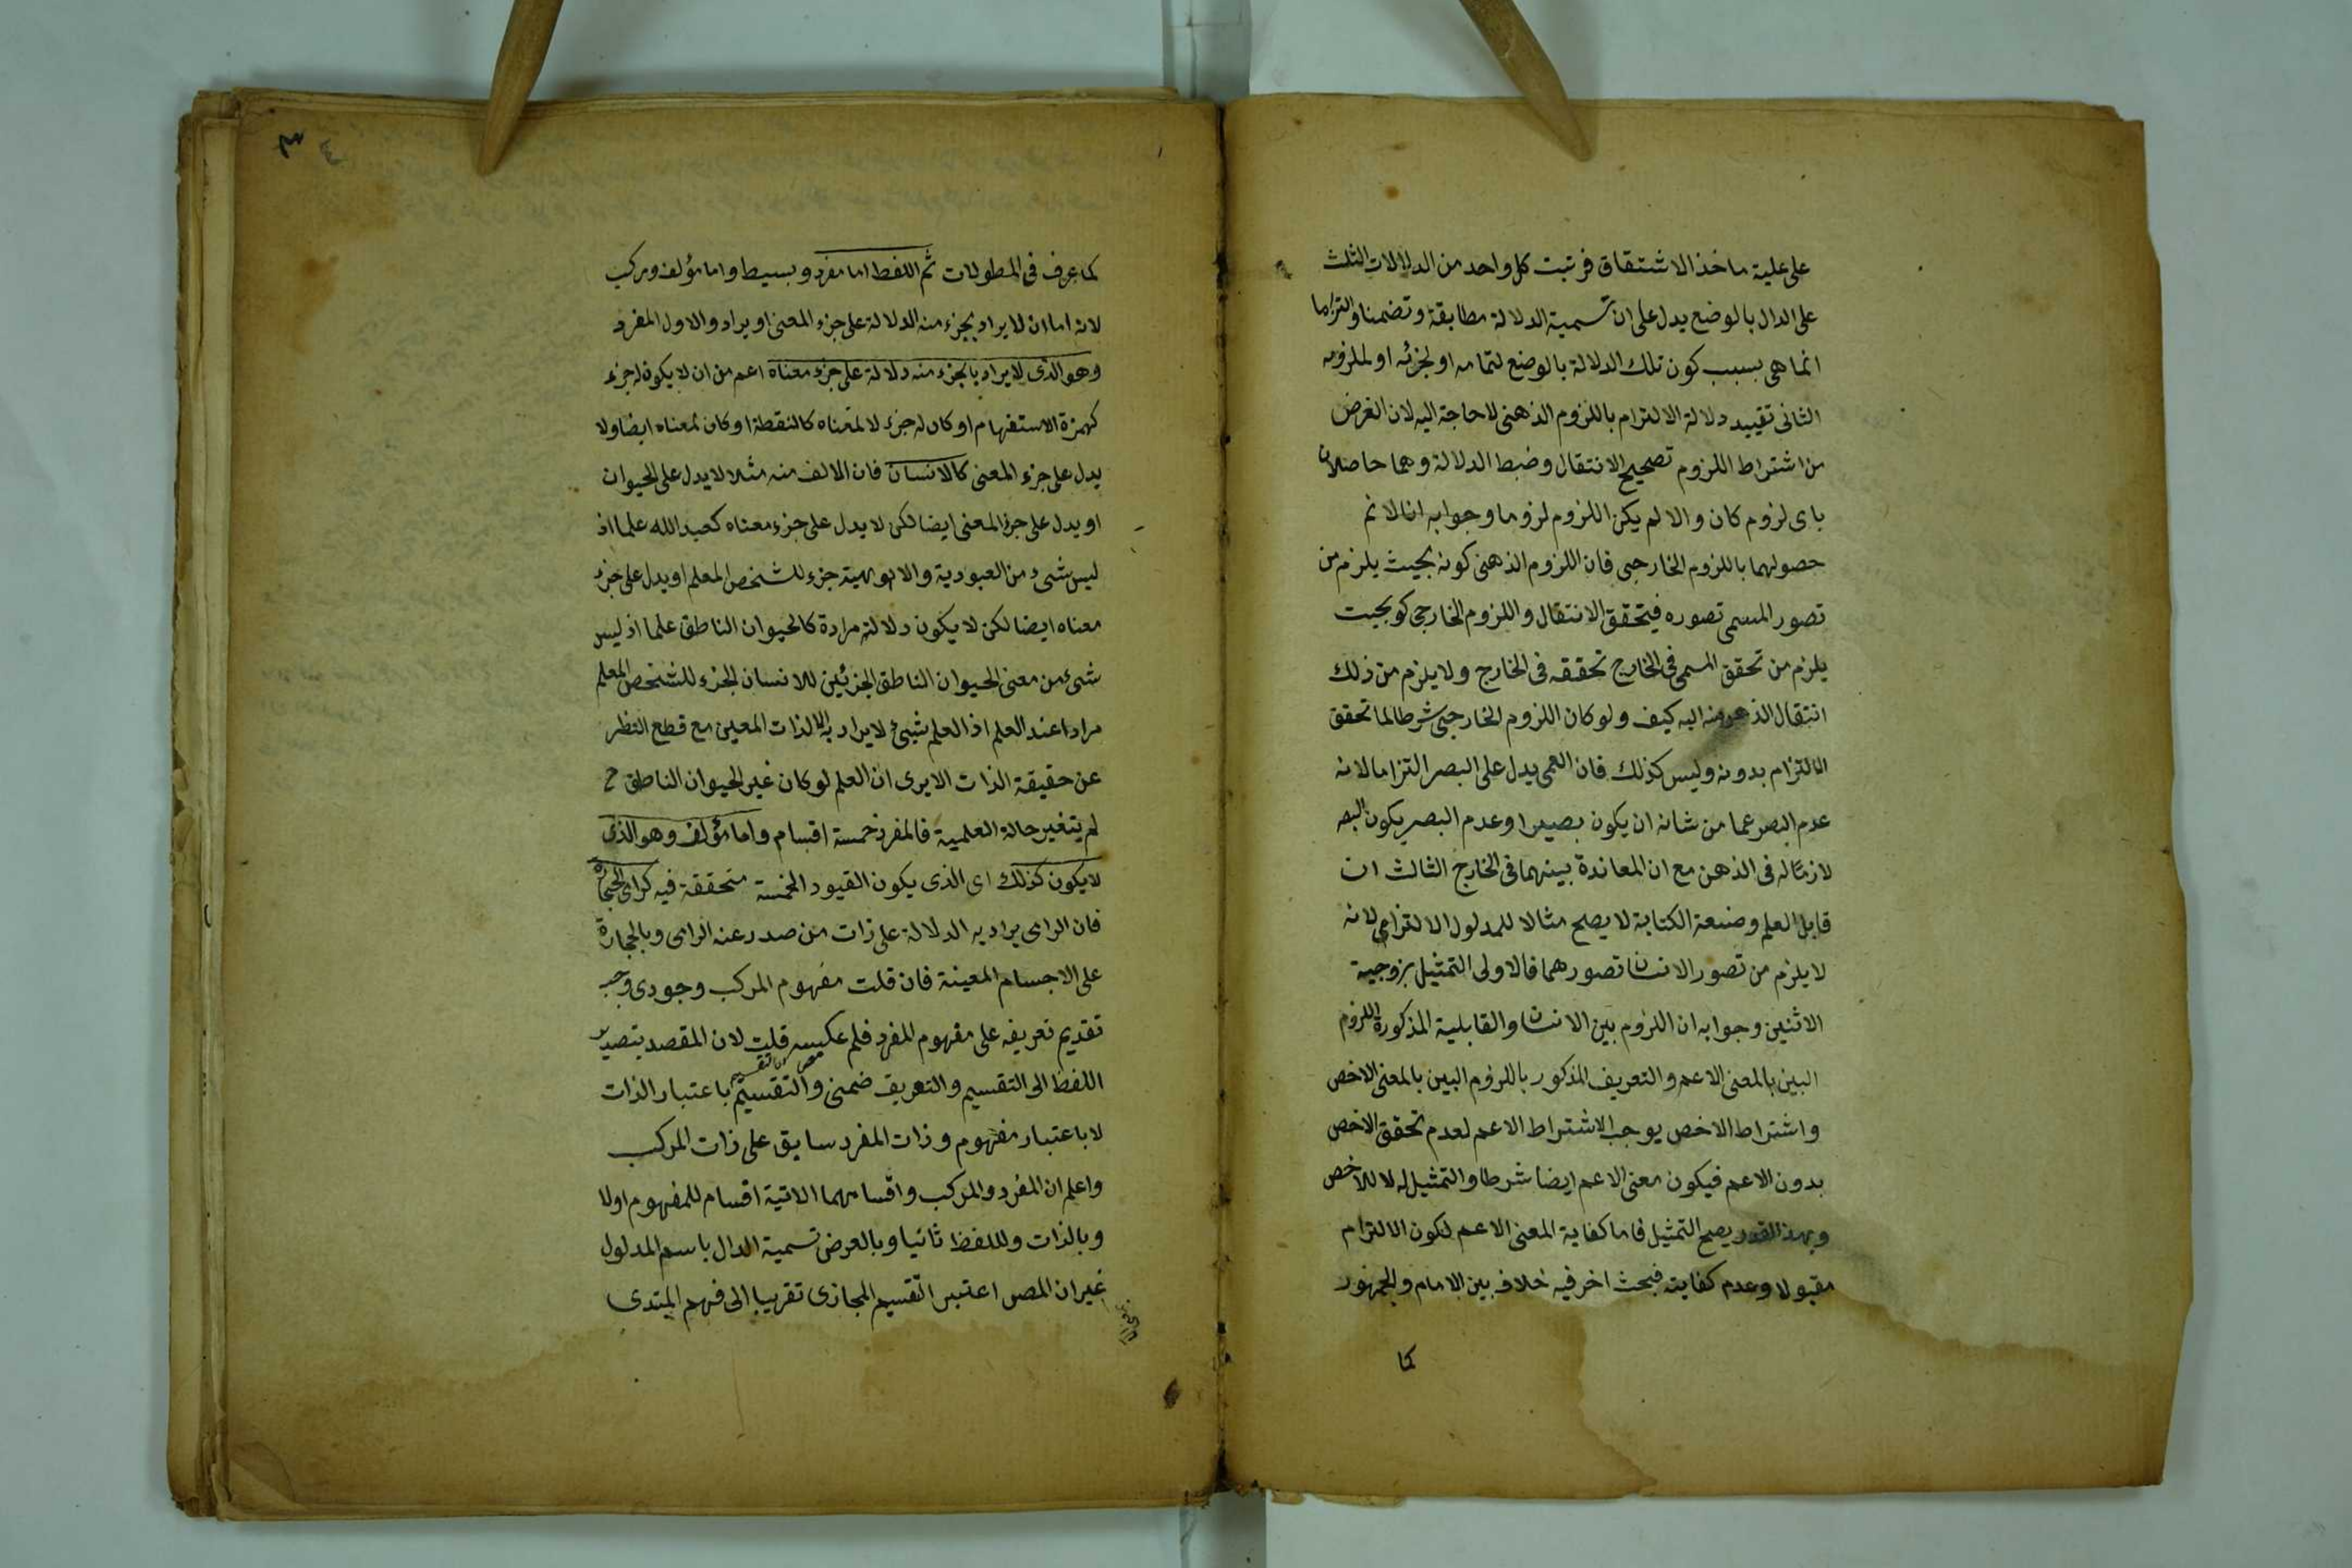 على علية ماخذ الاشتقاق فرتبت كل واحد من الدلالات الثلث
على الدال بالوضع يدل على ان تسمية الدلالة مطابقة وتضمنا والتزاما
انما هى بسبب كون تلك الدلالة بالوضع لتمامه او لجزئه او لملزومه
الثانى تقييد دلالة الالتزام باللزوم الذهنى لا حاجة اليه لان الغرض
من اشتراط اللزوم تصحيح الانتقال وضبط الدلالة وهما حاصلان
باى لزوم كان والا لم يكن اللزوم لزوما وجوابه انا لا نم
حصولهما باللزوم الخارجى فان اللزوم الذهنى كونه بحيث يلزم من
تصور المسمى تصوره فيتحقق الانتقال واللزوم الخارجى كو بحيث
يلزم من تحقق المسمى فى الخارج تحققه فى الخارج ولا يلزم من ذلك
انتقال الذهن منه اليه كيف ولو كان اللزوم الخارجى شرطا لما تحقق
الالتزام بدونه وليس كذلك فان العمى يدل على البصر التزاما لانه
عدم البصر عما من شانه ان يكون بصيرا وعدم البصر يكون البصر
لازما له فى الذهن مع ان المعاندة بينهما فى الخارج الثالث ان
قابل العلم وصنعة الكتابة لا يصلح مثالا للمدلول الالتزامى لانه
لا يلزم من تصور الانسان تصورهما فالاولى التمثيل بزوجية
الاثنين وجوابه ان اللزوم بين الانسان والقابلية المذكورة اللزوم
البين بالمعنى الاعم والتعريف المذكور باللزوم البين بالمعنى الاخص
واشتراط الاخص يوجب الاشتراط الاعم لعدم تحقق الاخص
بدون الاعم فيكون معنى الاعم ايضا شرطا والتمثيل له لا للاخص
وبهذا القدر يصح التمثيل فاما كفاية المعنى الاعم لكون الالتزام
مقبولا وعدم كفايته فبحث اخر فيه خلاف بين الامام والجمهور
كما
كما عرف فى المطولات ثم اللفظ اما مفرد وبسيط واما مؤلف ومركب
لانه اما ان لا يراد بجزء منه الدلالة على جزء المعنى او يراد والاول المفرد
وهو الذى لا يراد بالجزء منه دلالة على جزء معناه اعم من ان لا يكون له جزء
كهمزة الاستفهام او كان له جزء لا لمعناه كالنقطة او كان لمعناه ايضا ولا
يدل على جزء المعنى كالانسان فان الالف منه مثلا لا يدل على الحيوان
او يدل على جزء المعنى ايضا لكن لا يدل على جزء معناه كعبد الله علما اذ
ليس شىء من العبودية والالوهية جزء للشخص المعلم او يدل على جزء
معناه ايضا لكن لا يكون دلالته مرادة كالحيوان الناطق علما اذ ليس
شىء من معنى الحيوان الناطق الجزئين للانسان الجزء للشخص المعلم
مرادا عند العلم اذ العلم شىء لا يراد به الا الذات المعين مع قطع النظر
عن حقيقة الذات الا يرى ان العلم لو كان غير الحيوان الناطق
لم يتغير حالة العلمية فالمفرد خمسة اقسام واما مؤلف وهو الذى
لا يكون كذلك اى الذى يكون القيود الخمسة متحققة فيه كرامى الحجارة
فان الرامى يراد به الدلالة على ذات من صدر عنه الرامى وبالحجارة
على الاجسام المعينة فان قلت مفهوم المركب وجودى وجب
تقديم تعريفه على مفهوم المفرد فلم عكسه قلت لان المقصد بتصدير
اللفظ الى التقسيم والتعريف ضمنى والتقسيم باعتبار الذات
لا باعتبار مفهوم وذات المفرد سابق على ذات المركب
واعلم ان المفرد والمركب واقسامهما الاتية اقسام للمفهوم اولا
وبالذات وللفظ ثانيا وبالعرض تسمية الدال باسم المدلول
غير ان المصر اعتبر التقسيم المجازى تقريبا الى فهم المبتدى